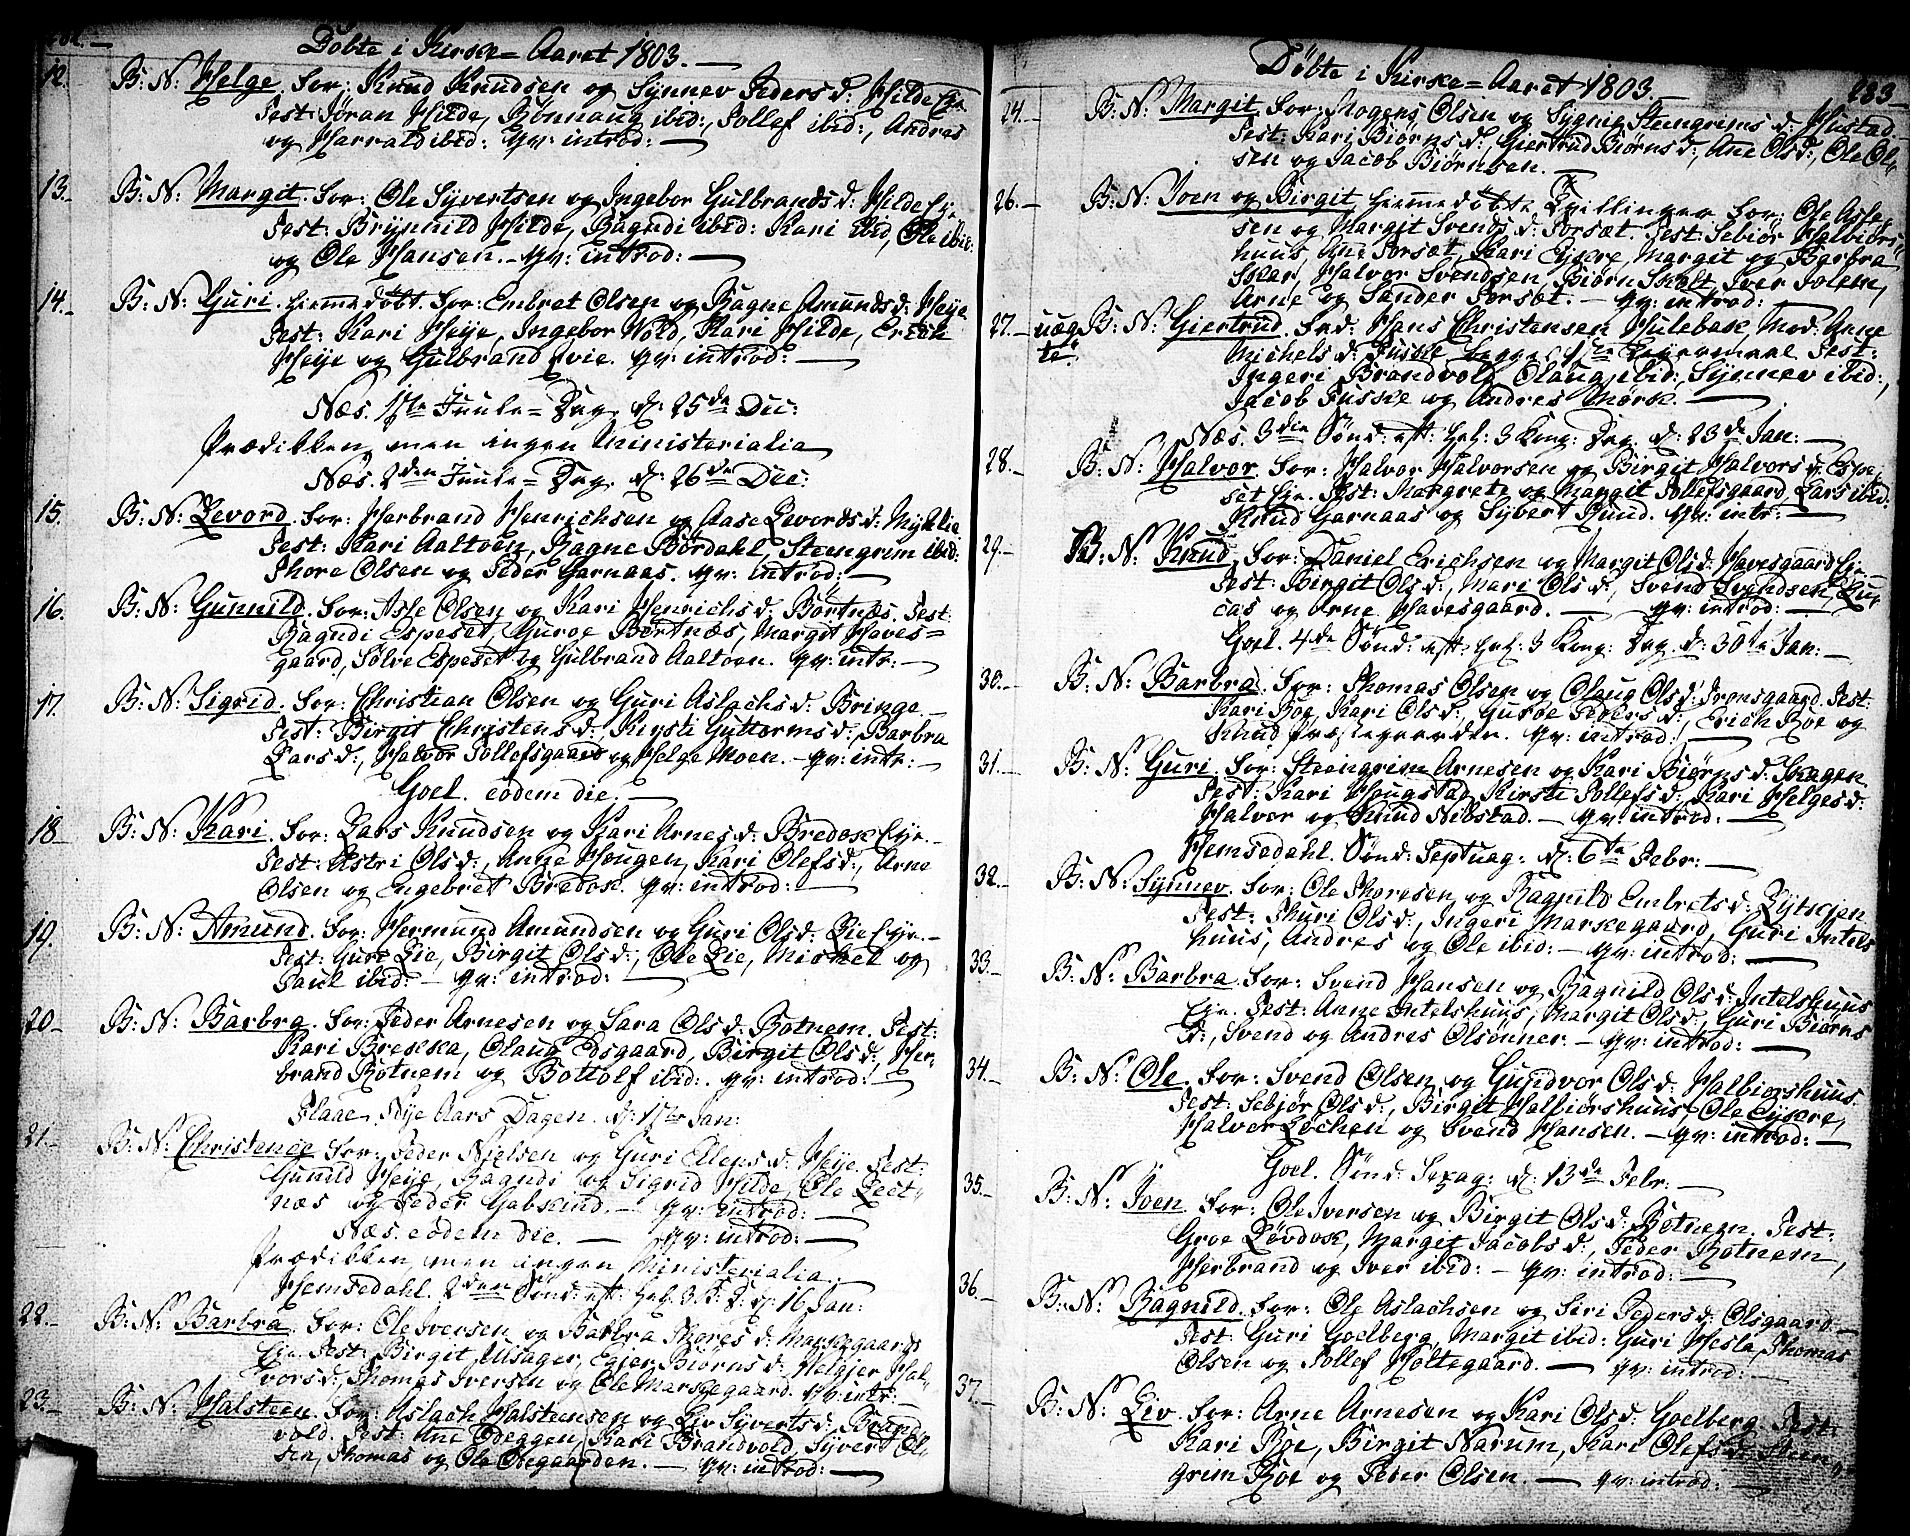 282.
Döbte i Kirke=Aaret 1803.
12. B: N: Helge. For: Knud Knudsen og Synnev Peders d: Hilde Eje
Test: Jøran Hilde, Rønnaug ibid:, Tollef ibid:, Andres
og Harrald ibid: qv: introd:
13. B: N: Margit. For: Ole Syvertsen og Ingebor Gulbrands d: Hilde Eje
Test: Brynnild Hilde, Ragndi ibid: Kari ibid, Ole ibid:
og Ole Hansen. qv: introd:
14. B: N: Guri. hiemmedøbt. For: Embret Olsen og Ragne Amunds d: Heije
Test: Kari Heije, Ingebor Wold, Kari Hilde, Erich
Heije og Gulbrand Evie. qv: introd:
Næs. 1ste Juule=Dag. d: 25de Dec:
Prædikken, men ingen Ministerialia
Næs. 2den Juule=Dag. d: 26de Dec:
15. B: N: Levord. For: Herbrand Henrichsen og Aase Levords d: Myhlie
Test: Kari Aaltoen, Ragne Børdahl, Steengrim ibid:
Thore Olsen og Peder Garnaas. qv: introd:
16. B: N: Gunnild. For: Asle Olsen og Kari Henrichs d: Børtnæs. Test:
Ragndi Espeset, Guroe Børtnæs, Margit Haves=
gaard, Sølve Espeset og Gulbrand Aaltoen. qv: intr:
17. B: N: Sigrid. For: Christian Olsen og Guri Aslachs d: Bringe.
Test: Birgit Christens d:, Kirsti Guttorms d:, Barbra
Lars d:, Halvor Tollefsgaard og Helge Moen. qv: intr:
Goel. eodem die.
18. B: N: Kari. For: Lars Knudsen og Kari Arnes d: Bredok Eje.
Test: Astri Ols d:, Anne Hougen, Kari Olefs d:, Arne
Olsen og Engebret Bredok. qv: introd:
19. B: N: Amund. For: Hermund Amundsen og Guri Ols d: Lie Eje.
Test: Guri Lie, Birgit Ols d:, Ole Lie, Mickel og
Paul ibid: qv: introd:
20. B: N: Barbra. For: Peder Arnesen og Sara Ols d: Rotnem. Test:
Kari Brekka, Olaug Edsgaard, Birgit Ols d:, Her-
brand Rotnem og Bottolf ibid: qv: introd:
Flaae. Nye Aars Dagen. d: 1ste Jan:
21. B: N: Christence. For: Peder Nielsen og Guri Ellens d: Heije. Test:
Gunild Heije, Ragndi og Sigrid Hilde, Ole Leet-
næs og Peder Gabskind. qv: introd:
Næs. eodem die. qv: introd:
Prædikken, men ingen Ministerialia
Hemsedahl. 2den Sönd: eft: Hel: 3 K: D: d: 16 Jan:
22. B: N: Barbra. For: Ole Iversen og Barbra Thores d: Markegaards
Eje. Test: Birgit Ulsager, Egier Biørns d: Helgier Hal-
vors d:, Thomas Iversen og Ole Markegaard. qv: intr:
23. B: N: Halsteen. For: Aslach Halsteensen og Liv Syverts d: Brand
vold. Test: Ane Ødeggen, Kari Brandvold, Syvert Ol-
sen, Thomas og Ole Øegaarden. qv: introd:
Döbte i Kirke=Aaret 1803.
283
24. B: N: Margit. For: Mogens Olsen og Sygnie Steengrims d: Hustad.
Test: Kari Biørns d:, Giertrud Biørns d:, Ane Ols d:, Ole Ol-
sen og Jacob Biørnsen.
26. B: N: Joen og Birgit, hiemmedøbte Tvillinger. For: Ole Asle-
sen og Margit Svends d: Torsæt. Test: Sebiør Halbiørs-
huus, Ane Torsæt, Kari Eykre, Margit og Barbra
Skar, Halvor Svendsen, Biørn Skolt, Iver Tolem,
Arne og Sander Torsæt. qv: introd:
27. uæg- te: B: N: Giertrud. Fad: Hans Christensen Hulebak, Mod: Anne
Michels d: Tuske begges 1ste Leyermaal Test:
Ingeri Brandvold, Olaug ibid:, Synnev ibid:,
Jacob Tuske og Andres Mørk.
Næs. 3die Sönd: eft: Hel: 3 Kong: Dag. d: 23de Jan:
28. B: N: Halvor. For: Halvor Halvorsen og Birgit Halvors d: Espe-
set Eje. Test: Margrete og Margit Tollefsgaard, Lars ibid:
Knud Garnaas og Syvert Ruud. qv: intr:
29. B: N: Knud. For: Daniel Erichsen og Margit Ols d: Havesgaard Eje.
Test: Birgit Ols d:, Mari Ols d:, Svend Svendsen, Lu-
cas og Arne Havesgaard. qv: introd:
Goel. 4de Sönd: eft: Hel: 3 Kong: Dag. d: 30te Jan:
30. B: N: Barbra. For: Thomas Olsen og Olaug Ols d: Tronsgaard. Test:
Kari Roe, Kari Ols d:, Guroe Peders d:, Erich Roe og
Knud Præstegaarden. qv: introd:
31. B: N: Guri. For: Steengrim Arnesen og Kari Biørns d: Skagen
Test: Kari Hougstad, Kirsti Tollefs d:, Kari Helges d:
Halvor og Knud Nibstad. qv: introd:
Hemsedahl. Sönd: Septuag: d: 6te Febr:
32. B: N: Synnev. For: Ole Thoresen og Ragnild Embrets d: Lytskjen
Test: Thuri Ols d:, Ingeri Markegaard, Guri Intels
huus, Andres og Ole ibid: qv: introd:
33. B: N: Barbra. For: Svend Hansen og Ragnild Ols d: Intelshuus
Eje. Test: Anne Intelshuus, Margit Ols d:, Guri Biørns
d:, Svend og Andres Olsønner. qv: introd:
34. B: N: Ole. For: Svend Olsen og Gundvor Ols d: Halbiørshuus.
Test: Sebjør Ols d:, Birgit Halbiørshuus, Ole Eykre,
Halvor Løchen og Svend Hansen. qv: introd:
Goel. Sönd: Sexag: d: 13de Febr:
35. B: N: Iven. For: Ole Iversen og Birgit Ols d: Rotnem. Test:
Groe Løvdok, Margit Jacobs d:, Peder Rotnem,
Herbrand og Iver ibid: qv: introd:
36. B: N: Ragnild. For: Ole Aslachsen og Siri Peders d: Olsgaard.
Test: Guri Goelberg, Margit ibid: Guri Hesla, Thomas
Olsen og Tollef Holtegaard. qv: introd:
37. B: N: Liv. For: Arne Arnesen og Kari Ols d: Goelberg. Test:
Kari Roe, Birgit Narum, Kari Olefs d: Steen-
grim Roe og Peder Olsen. qv: introd: